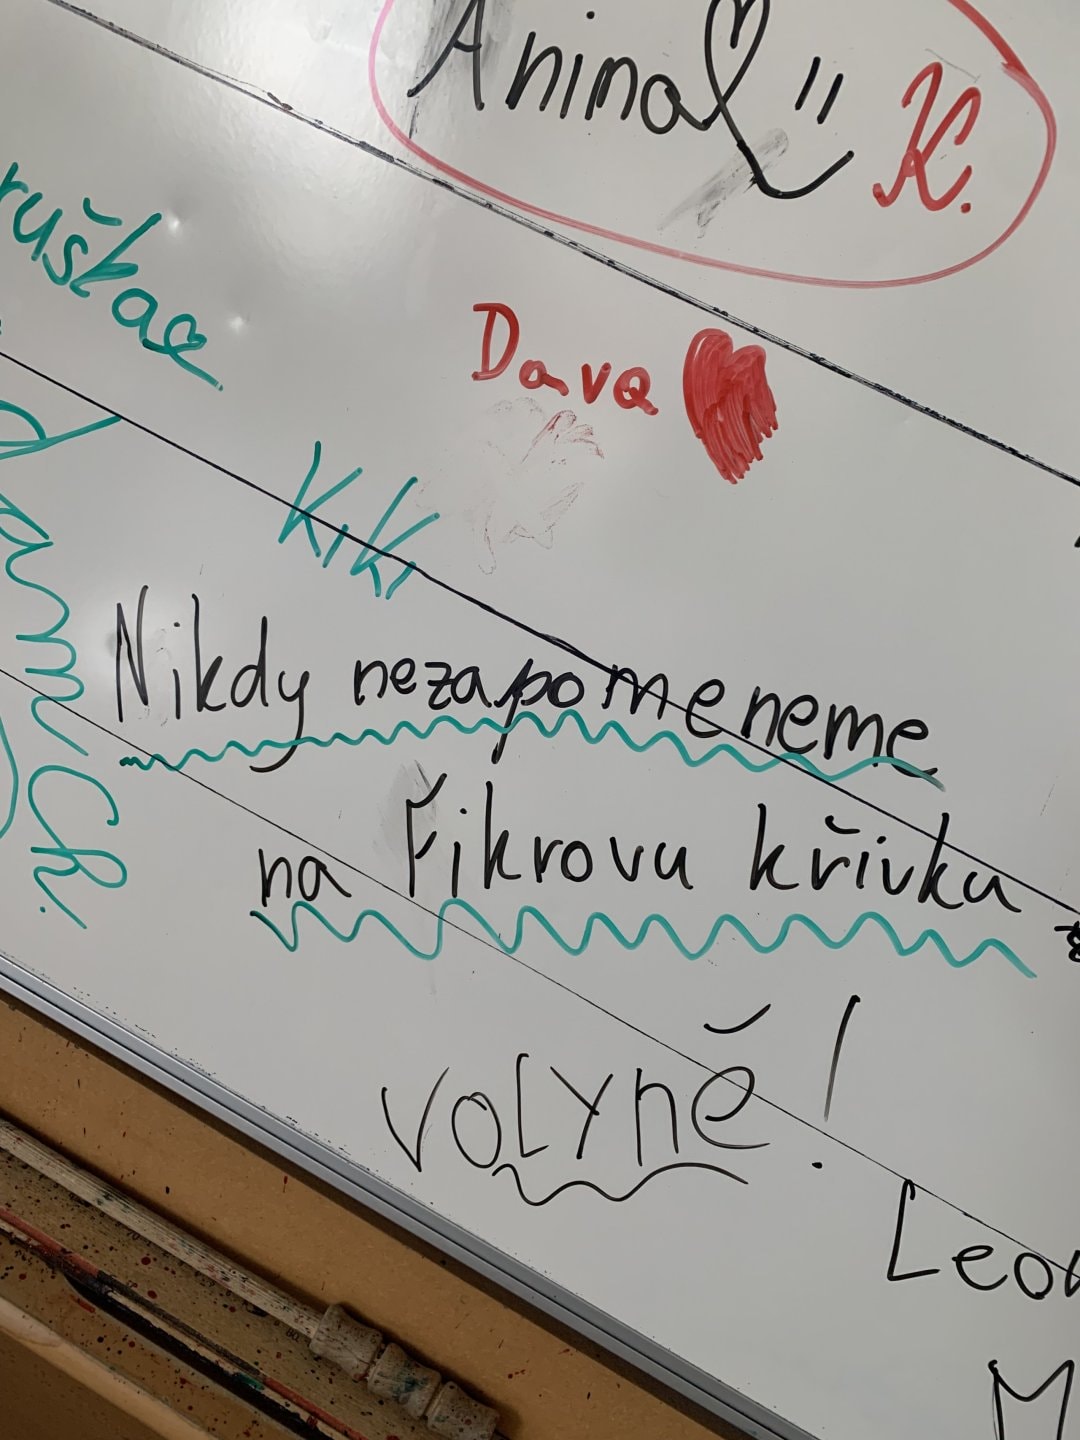 Animal " K.
ruškae
Dava
Kiki
Nikdy nezapomeneme
na Fikrovu křivku
volyně!
Leon
M